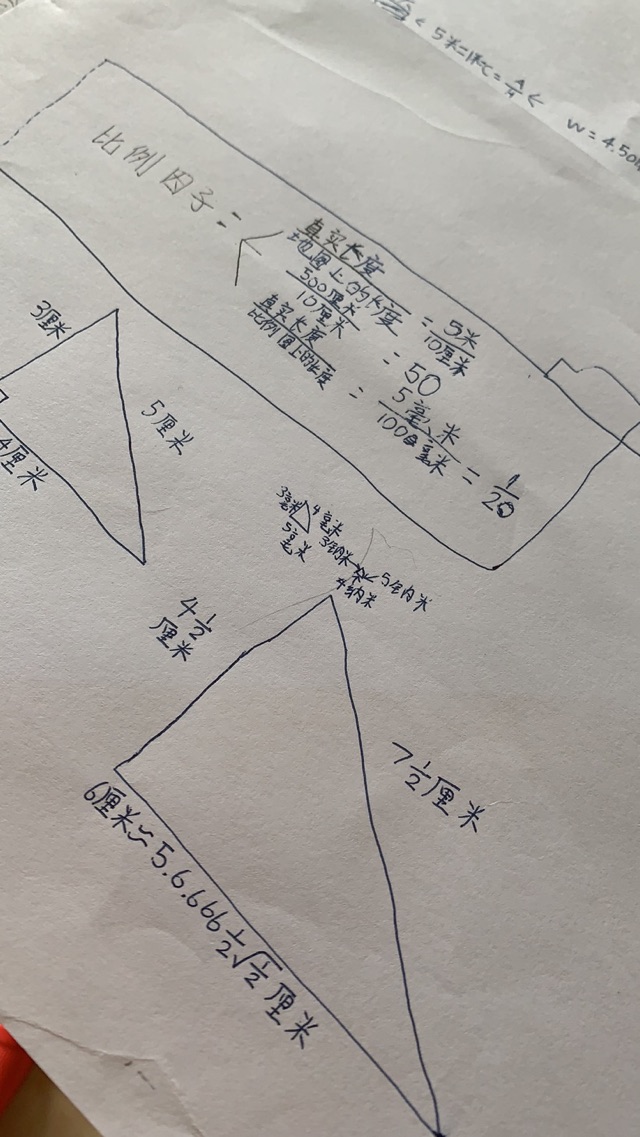 < 5米=
W = 4.50
比例因子 =
真实长度
地图上的长度
= 5米
10厘米
500厘米
10厘米
= 50
真实长度
比例图上的长度
= 5毫米
100毫米
= 1
20
3厘米
5厘米
4厘米
3毫米
4毫米
5毫米
3纳米
5纳米
4纳米
4 1/2
厘米
7 1/2 厘米
6厘米≈5.6.666 1/2 √1/2 厘米